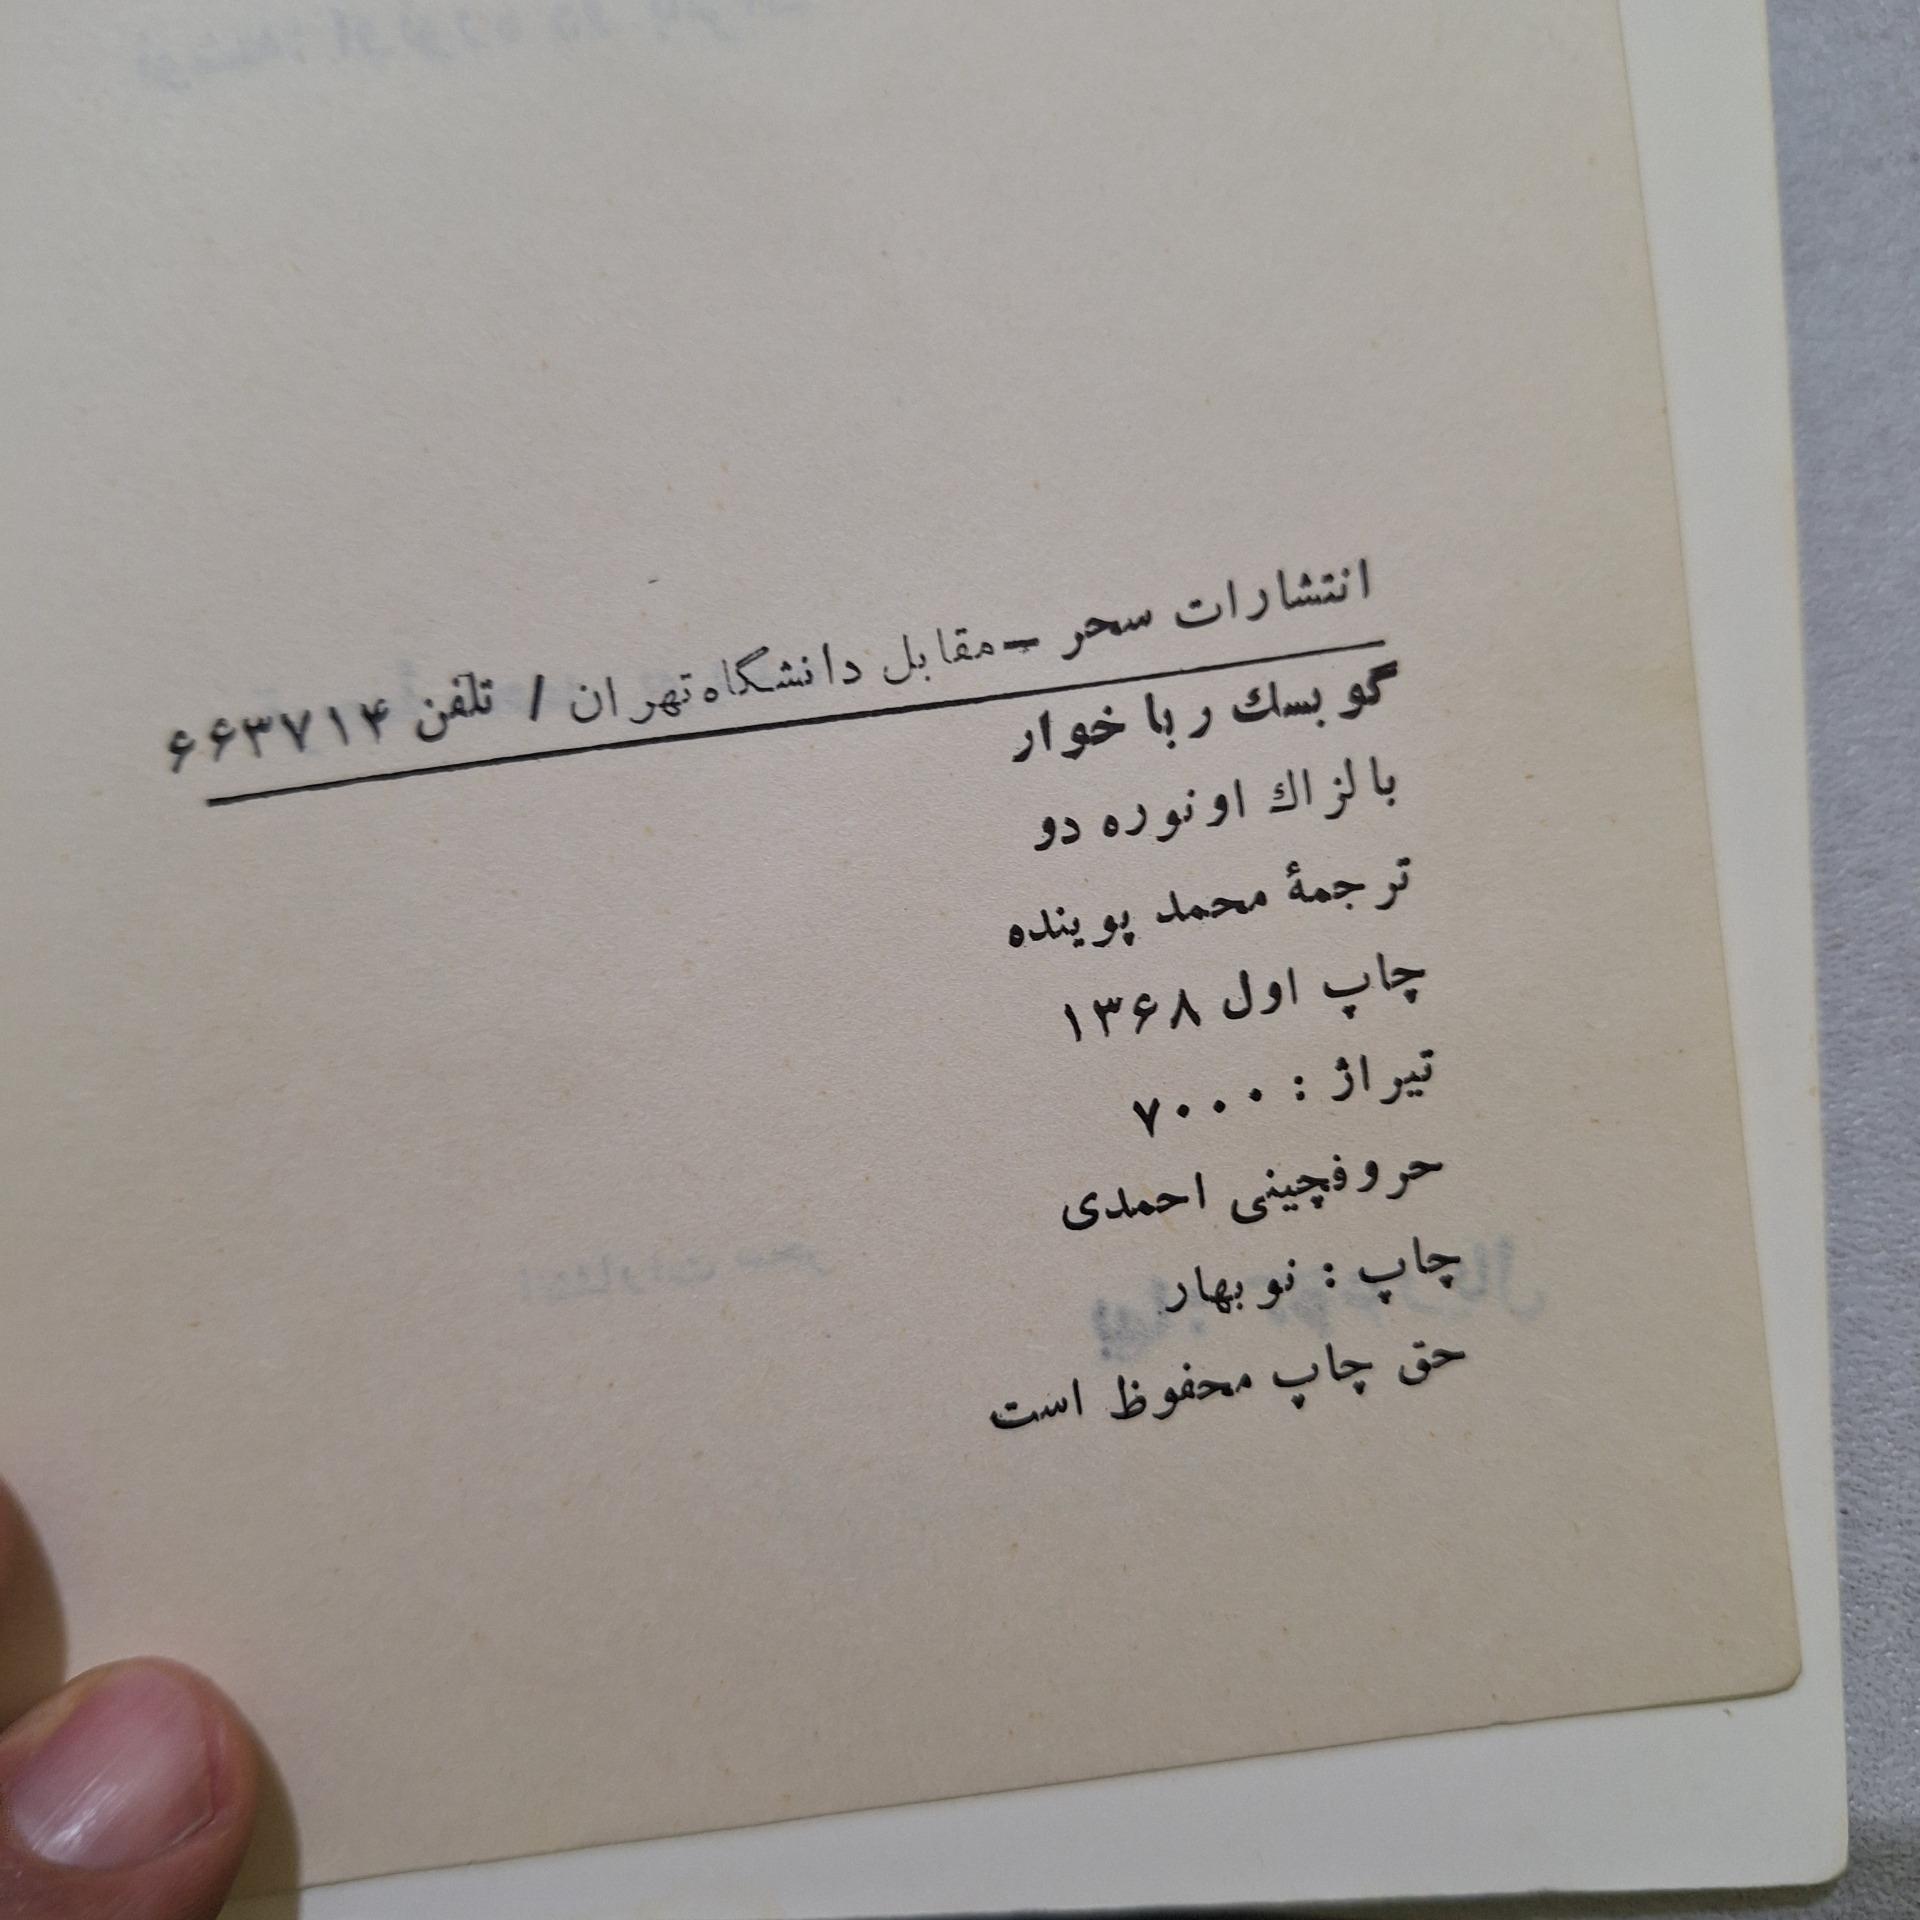 انتشارات سحر – مقابل دانشگاه تهران / تلفن ۶۶۳۷۱۴
گوبسك رباخوار
بالزاك اونوره دو
ترجمهٔ محمد پوینده
چاپ اول ۱۳۶۸
تیراژ : ۷۰۰۰
حروفچینی احمدی
چاپ : نوبهار
حق چاپ محفوظ است